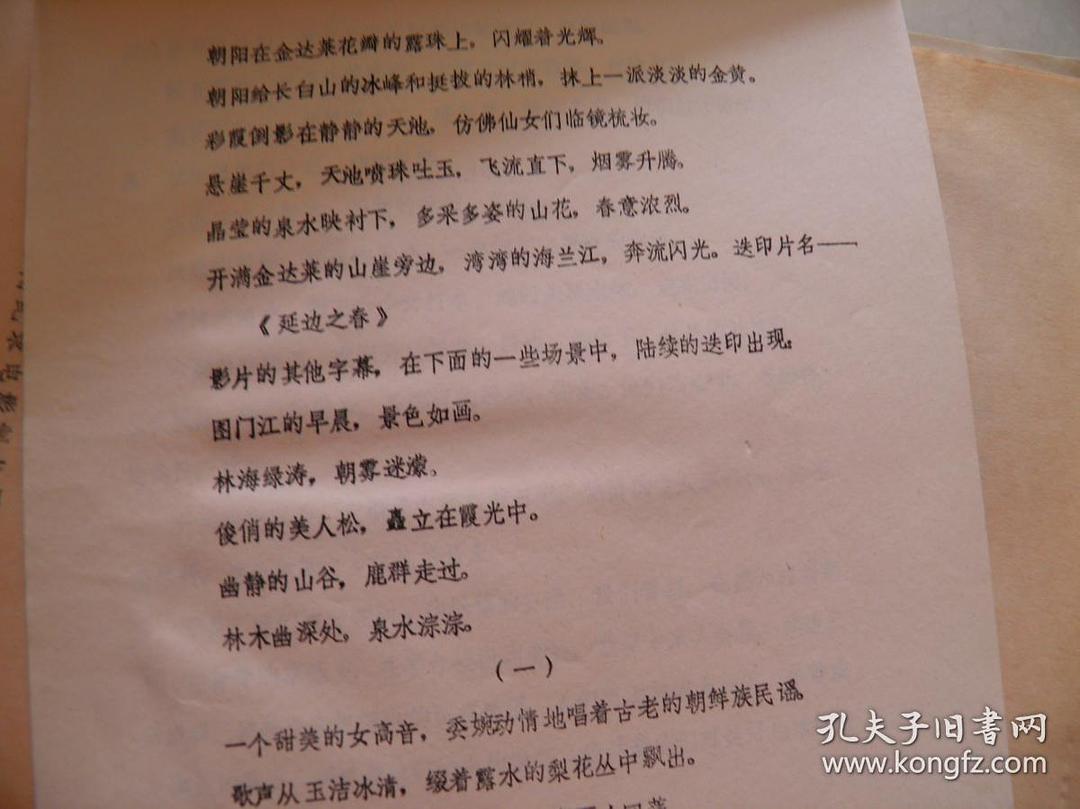 朝阳在金达莱花瓣的露珠上，闪耀着光辉。
朝阳给长白山的冰峰和挺拔的林梢，抹上一派淡淡的金黄。
彩霞倒影在静静的天池，仿佛仙女们临镜梳妆。
悬崖千丈，天池喷珠吐玉，飞流直下，烟雾升腾。
晶莹的泉水映衬下，多采多姿的山花，春意浓烈。
开满金达莱的山崖旁边，湾湾的海兰江，奔流闪光。迭印片名——
《延边之春》
影片的其他字幕，在下面的一些场景中，陆续的迭印出现：
图门江的早晨，景色如画。
林海绿涛，朝雾迷濛。
俊俏的美人松，矗立在霞光中。
幽静的山谷，鹿群走过。
林木幽深处，泉水淙淙。
（一）
一个甜美的女高音，委婉动情地唱着古老的朝鲜族民谣。
歌声从玉洁冰清，缀着露水的梨花丛中飘出。
孔夫子旧书网
www.kongfz.com